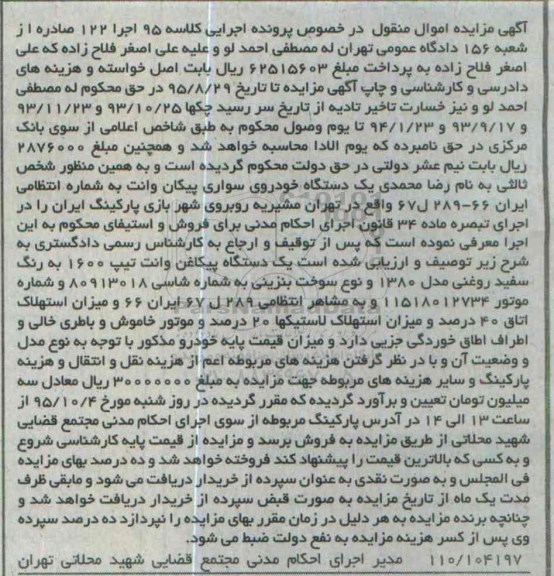 آگهی مزایده اموال منقول در خصوص پرونده اجرایی کلاسه ۹۵ اجرا ۱۲۲ صادره از
شعبه ۱۵۶ دادگاه عمومی تهران له مصطفی احمد لو و علیه علی اصغر فلاح زاده که علی
اصغر فلاح زاده به پرداخت مبلغ ۶۲۵۱۵۶۰۳ ریال بابت اصل خواسته و هزینه های
دادرسی و کارشناسی و چاپ آگهی مزایده تا تاریخ ۹۵/۸/۲۹ در حق محکوم له مصطفی
احمد لو و نیز خسارت تاخیر تادیه از تاریخ سر رسید چکها ۹۳/۱۰/۲۵ و ۹۳/۱۱/۲۳
و ۹۳/۹/۱۷ و ۹۴/۱/۲۳ تا یوم وصول محکوم به طبق شاخص اعلامی از سوی بانک
مرکزی در حق نامبرده که یوم الادا محاسبه خواهد شد و همچنین مبلغ ۲۸۷۶۰۰۰
ریال بابت نیم عشر دولتی در حق دولت محکوم گردیده است و به همین منظور شخص
ثالثی به نام رضا محمدی یک دستگاه خودروی سواری پیکان وانت به شماره انتظامی
ایران ۶۶-۲۸۹ ل۶۷ واقع در تهران مشیریه روبروی شهر بازی پارکینگ ایران را در
اجرای تبصره ماده ۳۴ قانون اجرای احکام مدنی برای فروش و استیفای محکوم به این
اجرا معرفی نموده است که پس از توقیف و ارجاع به کارشناس رسمی دادگستری به
شرح زیر توصیف و ارزیابی شده است یک دستگاه پیکاغن وانت تیپ ۱۶۰۰ به رنگ
سفید روغنی مدل ۱۳۸۰ و نوع سوخت بنزینی به شماره شاسی ۸۰۹۱۳۰۱۸ و شماره
موتور ۱۱۵۱۸۰۱۲۷۳۴ و به مشاهر انتظامی ۲۸۹ ل ۶۷ ایران ۶۶ و میزان استهلاک
اتاق ۴۰ درصد و میزان استهلاک لاستیکها ۲۰ درصد و موتور خاموش و باطری خالی و
اطراف اطاق خوردگی جزیی دارد و میزان قیمت پایه خودرو مذکور با توجه به نوع مدل
و وضعیت آن و با در نظر گرفتن هزینه های مربوطه اعم از هزینه نقل و انتقال و هزینه
پارکینگ و سایر هزینه های مربوطه جهت مزایده به مبلغ ۳۰۰۰۰۰۰۰ ریال معادل سه
میلیون تومان تعیین و برآورد گردیده که مقرر گردیده در روز شنبه مورخ ۹۵/۱۰/۴ از
ساعت ۱۳ الی ۱۴ در آدرس پارکینگ مربوطه از سوی اجرای احکام مدنی مجتمع قضایی
شهید محلاتی از طریق مزایده به فروش برسد و مزایده از قیمت پایه کارشناسی شروع
و به کسی که بالاترین قیمت را پیشنهاد کند فروخته خواهد شد و ده درصد بهای مزایده
فی المجلس و به صورت نقدی به عنوان سپرده از خریدار دریافت می شود و مابقی ظرف
مدت یک ماه از تاریخ مزایده به صورت قبض سپرده از خریدار دریافت خواهد شد و
چنانچه برنده مزایده به هر دلیل در زمان مقرر بهای مزایده را نپردازد ده درصد سپرده
وی پس از کسر هزینه مزایده به نفع دولت ضبط می شود.
۱۱۰/۱۰۴۱۹۷ مدیر اجرای احکام مدنی مجتمع قضایی شهید محلاتی تهران